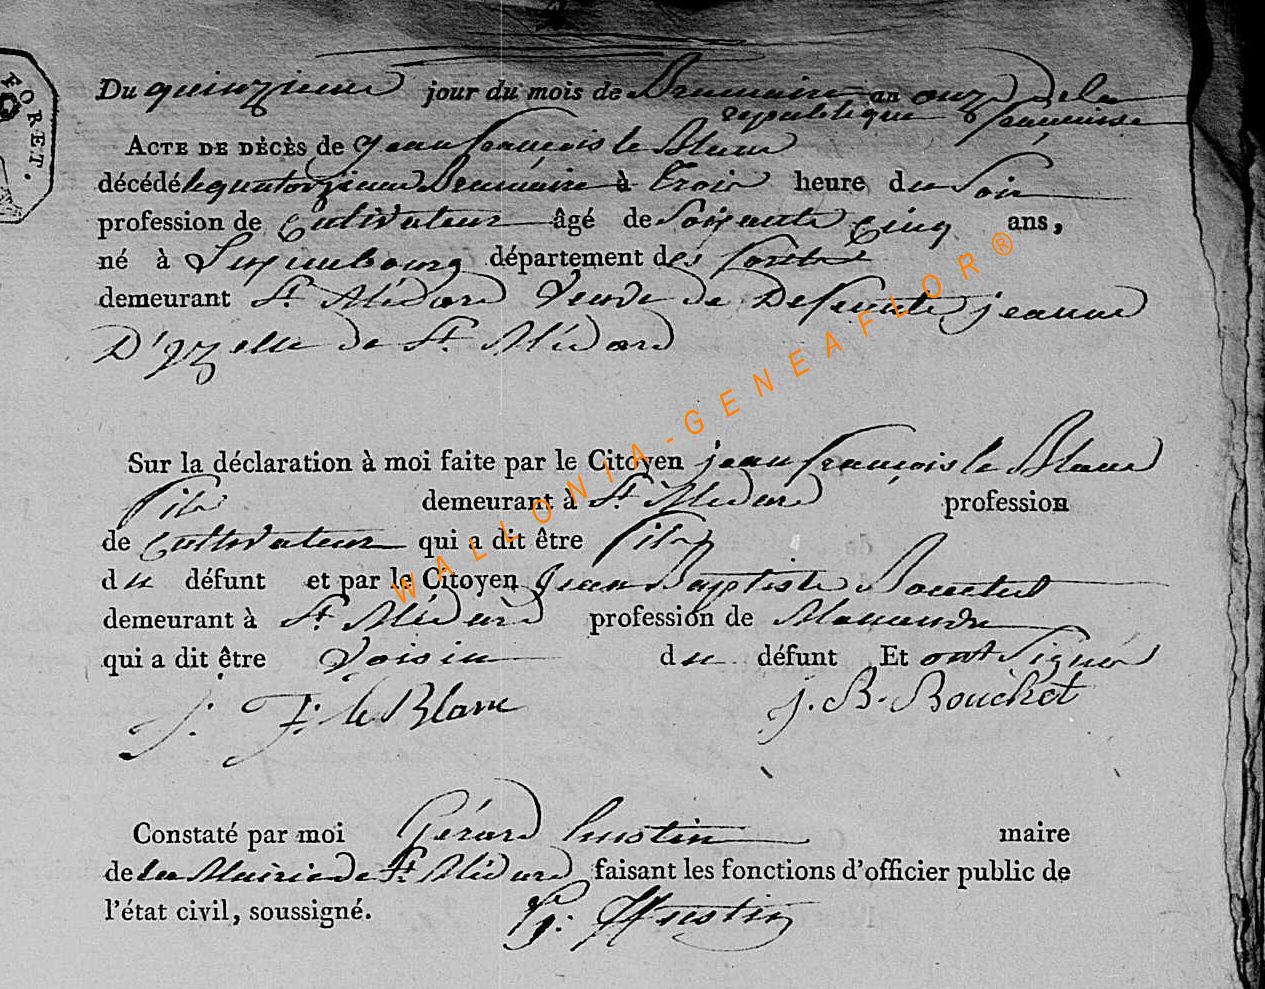 FORET.
Du quinzieme jour du mois de Brumaire an onze de la
republique francaise
ACTE DE DÉCÈS de jean françois le Blanc
décédé le quatorzieme Brumaire à trois heure du Soir
profession de Cultivateur âgé de Soixante Cinq ans,
né à Luxembourg département des forets
demeurant St. Médard Veuve de Defunte jeanne
D'yzelle de St. Médard
Sur la déclaration à moi faite par le Citoyen jean françois le Blanc
fils demeurant à St. Médard profession
de Cultivateur qui a dit être fils
du défunt et par le Citoyen Jean Baptiste Bouchet
demeurant à St. Médard profession de Manœuvre
qui a dit être Voisin du défunt Et ont Signé
J. F. le Blanc J. B. Bouchet
Constaté par moi Gérard hustin maire
de la Mairie de St. Médard faisant les fonctions d'officier public de
l'état civil, soussigné. G. Hustin
WALLONIA-GENEAFLOR®